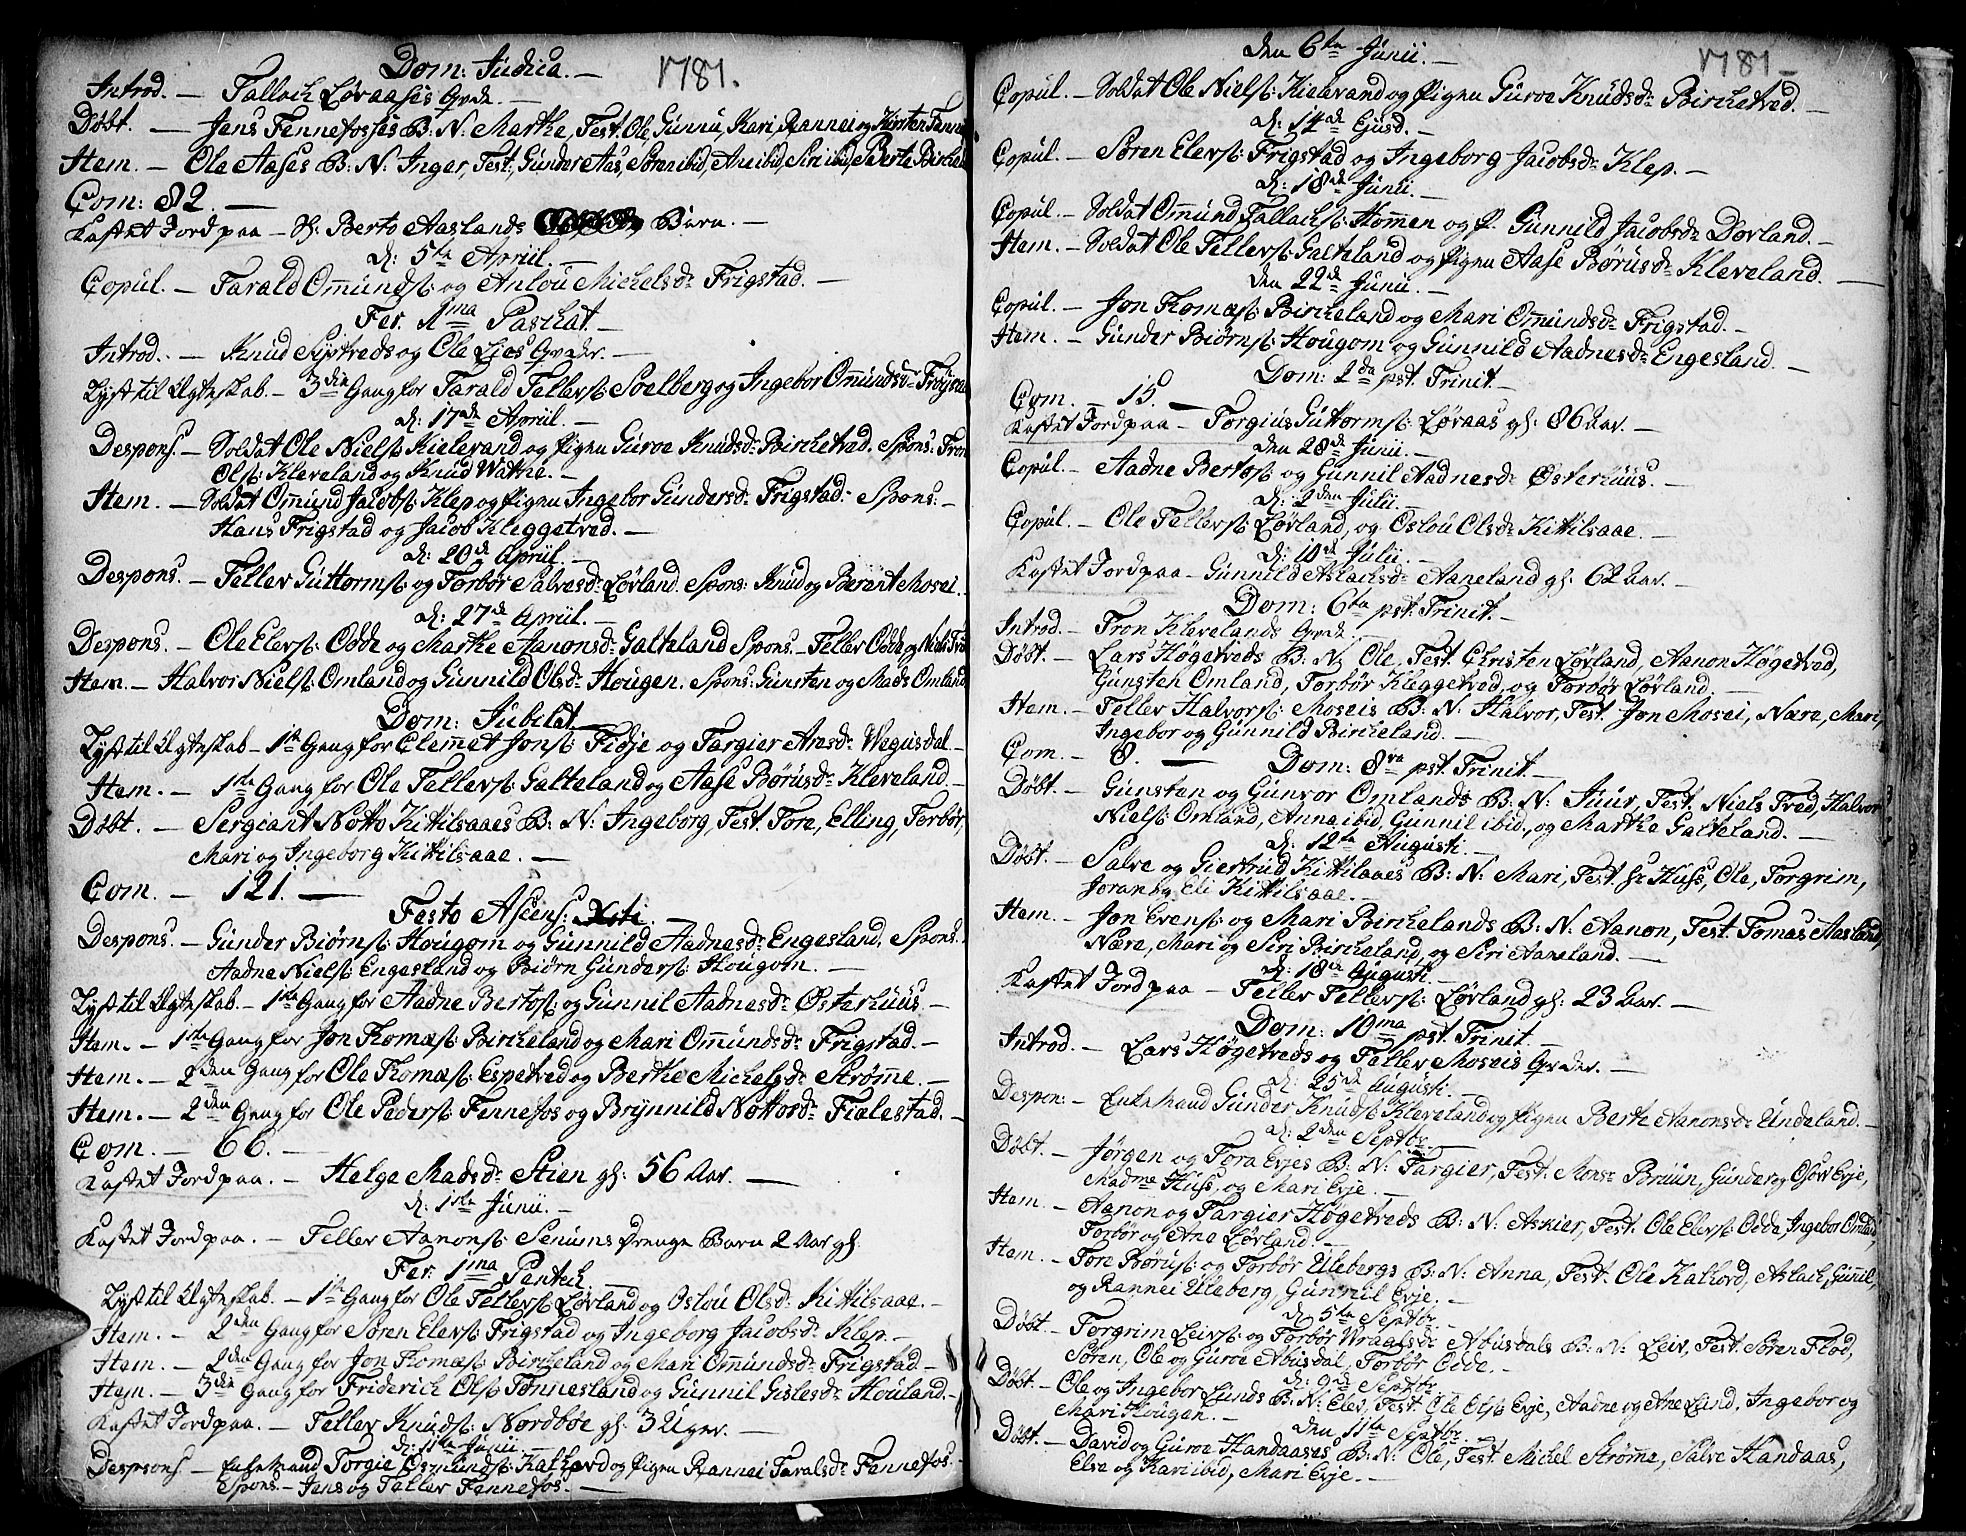 Dom: Judica. — 1781.
Introd. — Tallach Løraases Qvde. —
Døbt. — Jens Fennefosses B: N: Marthe, Test. Ole, Gunnu, Kari, Rannei og Kirsten Fenne
Item. — Ole Aases B: N: Inger, Test. Gunder Aas, Søren ibid, Ane ibid, Siri ibid, Berte Birkel
Com: 82. —
Kastet Jord paa — Berto Aaslands Barn. —
d: 5te April. —
Copul. — Tarald Omundss: og Anlou Michelsdr Frigstad. —
Fer. 1ma Paschat. —
Introd. — Knud Syrtveds og Ole Ljos Qvdr. —
Lyst til Ægteskab. — 3die Gang for Tarald Tellefs: Soelberg og Ingebor Omundsdr Frøysaa
d: 17de April. —
Despons. — Soldat Ole Niels: Kielevand og Pigen Guroe Knudsdr Birchetved. Spons: Tron
Ols: Kleveland og Knud Watne. —
Item. — Soldat Omund Jacobs: Klep og Pigen Ingebor Gundersdr Frigstad. Spons. —
Hans Frigstad og Jacob Kleggetved. —
d: 20de April. —
Despons. — Teller Guttorms: og Torbør Salvesdr Lørland. Spons: Knud og Berent Mosei. —
d: 27de April. —
Despons. — Ole Elefs: Odde og Marthe Aanonsdr Galteland Spons. — Teller Odde og Niels Tved
Item. — Halvor Niels: Omland og Gunnild Olsdr Hougen. Spons: Gunsten og Mads Omland
Dom: Jubilat. —
Lyst til Ægteskab — 1ste Gang for Clemmet Jons: Fidje og Targier Aresdr Wegusdal. —
Item. — 1ste Gang for Ole Tellefs: Galteland og Aase Børusdr Kleveland. —
Døbt. — Sergiant Notto Kittilsaaes B: N: Ingeborg, Test. Tore, Elling, Torbør,
Mari og Ingeborg Kittilsaae. —
Com. — 121. —
Festo Ascens: Xsti. —
Despons. — Gunder Biørns: Hougom og Gunnild Aadnesdr Engesland. Spons. —
Aadne Niels: Engesland og Biørn Gunders: Hougom. —
Lyst til Ægteskab — 1ste Gang for Aadne Bertos: og Gunnil Aadnesdr Østerhuus. —
Item. — 1ste Gang for Jon Thomæs: Bircheland og Mari Omundsdr Frigstad. —
Item. — 2den Gang for Ole Thomæs: Espetved og Berthe Michelsdr Strømme. —
Item. — 2den Gang for Ole Peders: Fennefos og Brynnild Nottordr Fialestad. —
Com. — 66. —
Kastet Jord paa. — Helge Madsdr Stien gl: 56 Aar. —
d: 1ste Junii. —
Kastet Jord paa. — Teller Aanons: Senums Drenge Barn 2 Aar gl:
Fer: 1ma Pentec. —
Lyst til Ægteskab. — 1ste Gang for Ole Tellefs: Lørland og Oslou Olsdr Kittilsaae. —
Item. — 2den Gang for Søren Elefs: Frigstad og Ingeborg Jacobsdr Klep. —
Item. — 2den Gang for Jon Thomæs: Bircheland og Mari Omundsdr Frigstad. —
Item. — 3die Gang for Friderich Ols: Tønnesland og Gunnil Gislesdr Houland. —
Kastet Jord paa. — Teller Knuds: Nordbøe gl: 3 Uger. —
d: 11te Junii. —
Despons. — Enkemand Torgie Osmunds: Kathord og Pigen Rannei Taralsdr Fennefos.
Spons. — Jens og Teller Fennefos. —
den 6te Junii. — 1781 —
Copul. — Soldat Ole Niels: Kielevand og Pigen Guroe Knudsdr Birchetved. —
d: 14de Ejusd. —
Copul. — Søren Elefs: Frigstad og Ingeborg Jacobsdr Klep. —
d: 18de Junii. —
Copul. — Soldat Omund Tallachs: Hommen og P. Gunnild Jacobsdr Dovland. —
Item. — Soldat Ole Tellefs: Galteland og Pigen Aase Børusdr Kleveland. —
den 22de Junii. —
Copul. — Jon Thomæs: Bircheland og Mari Omundsdr Frigstad. —
Item. — Gunder Biørns: Hougom og Gunnild Aadnesdr Engesland. —
Dom: 2da pst. Trinit. —
Com. — 15. —
Kastet Jord paa — Torgius Guttorms: Løraas gl: 86 Aar. —
den 28de Junii. —
Copul. — Aadne Bertos: og Gunnil Aadnesdr Østerhuus. —
d: 2den Julii. —
Copul. — Ole Tellefs: Lørland, og Oslou Olsdr Kittilsaae. —
d: 10de Julii. —
Kastet Jord paa — Gunnild Aslachsdr Aaneland gl: 62 Aar. —
Dom: 6ta pst. Trinit. —
Introd. — Tron Klevelands Qvde. —
Døbt. — Lars Høgetveds B: N: Ole, Test. Christen Lørland, Aanon Høgetved,
Gunsteh Omland, Torbør Kleggetved, og Torbør Lørland. —
Item. — Teller Halvors: Moseis B: N: Halvor, Test. Jon Mosei, Nære, Mari,
Ingebor og Gunnild Bircheland. —
Com. — 8. — Dom: 8va pst. Trinit. —
Døbt. — Gunsten og Gunvor Omlands B: N: Juur, Test. Niels Tved, Halvor
Niels: Omland, Anna ibid, Gunnil ibid., og Marthe Galteland. —
d: 12te Augusti. —
Døbt. — Salve og Giertrud Kittilsaaes B: N: Mari, Test Sr Huss, Ole, Torgrim,
Joran og Eli Kittilsaae. —
Item. — Jon Evens: og Mari Birchelands B: N: Aanon, Test. Tomas Aasland,
Nære, Mari og Siri Bircheland, og Siri Aaneland. —
d: 18de Augusti. —
Kastet Jord paa — Teller Tellefs: Lørland gl: 23 Aar. —
Dom: 10ma pst. Trinit. —
Introd. — Lars Høgetveds og Teller Moseis Qvder. —
d: 25de Augusti. —
Despon: — Enkemand Gunder Knuds: Kleveland og Pigen Berte Aanonsdr Undeland. —
d: 2den Septbr. —
Døbt. — Jørgen og Tora Evjes B: N: Targier, Test. Monsr Bruun, Gunder og Osov Evje,
Madme Huss, og Mari Evje. —
Item. — Aanon og Targier Høgetveds B: N: Askier, Test. Ole Elefs: Odde, Ingebor Omland,
Torbør og Ane Lørland. —
Item. — Tore Børus: og Torbør Ulebergs B: N: Anna, Test. Ole Kathord, Aslach, Gunnil,
og Rannei Uleberg, Gunnul Evje. —
d: 5te Septbr. —
Døbt. — Torgrim Leivs: og Torbør Wraalsdr Abusdals B: N: Leiv, Test. Søren Flod,
Søren, Ole og Guroe Abusdal, Torbør Odde. —
d: 9de Septbr. —
Døbt. — Ole og Ingebor Lunds B: N: Elev, Test Ole Ols: Evje, Aadne og Ane Lund, Ingebor og
Mari Hougen. —
den 11te Septbr. —
Døbt. — David og Guroe Handaases B: N: Ole, Test. Michel Strømme, Salve Handaas,
Elve og Kari ibid, Mari Evje. —